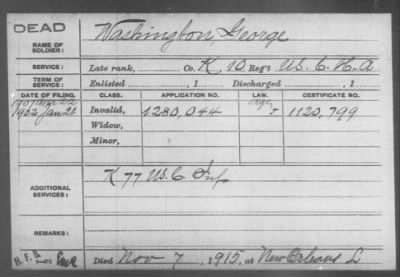 DEAD
NAME OF SOLDIER: Washington, George
SERVICE: Late rank, Co. K, 10 Reg't U.S.C.H.A
TERM OF SERVICE: Enlisted , 1 Discharged , 1
DATE OF FILING. CLASS. APPLICATION NO. LAW. CERTIFICATE NO.
1902 Jan 21 Invalid, 1280,044 1120,799
Widow,
Minor,
ADDITIONAL SERVICES: K 77 U.S.C Inf
REMARKS:
Died Nov 7, 1915, at New Orleans L